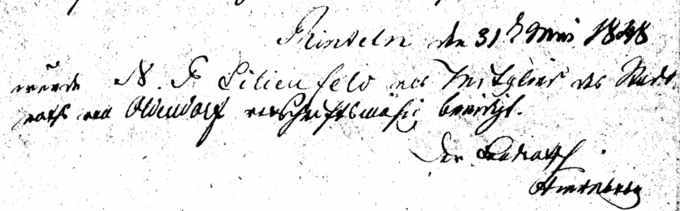 Rinteln den 31t Mai 1848
wurde N. S. Lilienfeld als Mitglied des Stadt
raths von Oldendorf vorschriftsmäßig beeidigt.
Der Landrath